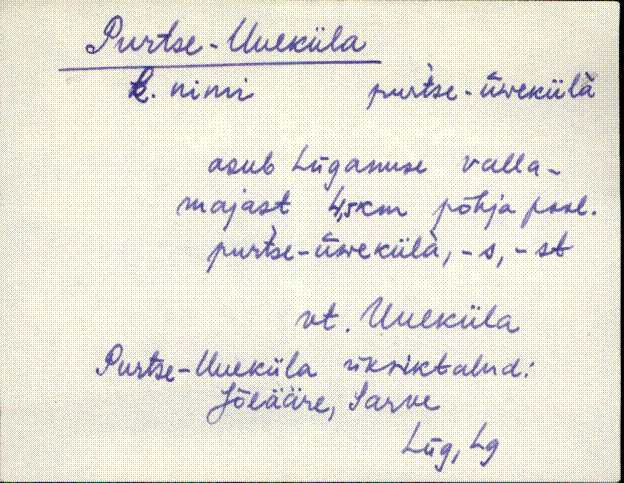 Purtse-Uueküla
k. nimi purtse-üwekülà
asub Lüganuse valla-
majast 4,5km põhja pool.
purtse-üwekülà, -s, -st
vt. Uueküla
Purtse-Uueküla üksiktalud:
Jõeääre, Sarve
Lüg, Lg